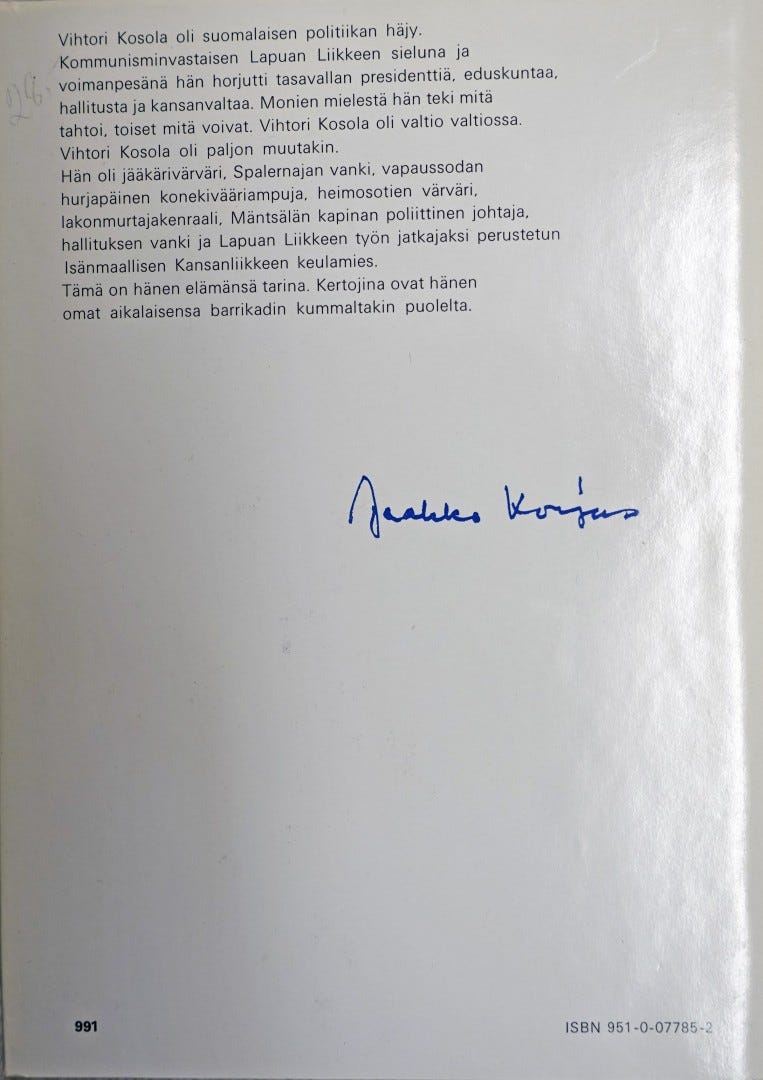 Vihtori Kosola oli suomalaisen politiikan häjy.
Kommunisminvastaisen Lapuan Liikkeen sieluna ja
voimanpesänä hän horjutti tasavallan presidenttiä, eduskuntaa,
hallitusta ja kansanvaltaa. Monien mielestä hän teki mitä
tahtoi, toiset mitä voivat. Vihtori Kosola oli valtio valtiossa.
Vihtori Kosola oli paljon muutakin.
Hän oli jääkärivärväri, Spalernajan vanki, vapaussodan
hurjapäinen konekivääriampuja, heimosotien värväri,
lakonmurtajakenraali, Mäntsälän kapinan poliittinen johtaja,
hallituksen vanki ja Lapuan Liikkeen työn jatkajaksi perustetun
Isänmaallisen Kansanliikkeen keulamies.
Tämä on hänen elämänsä tarina. Kertojina ovat hänen
omat aikalaisensa barrikadin kummaltakin puolelta.
Jaakko Korjus
991
ISBN 951-0-07785-2